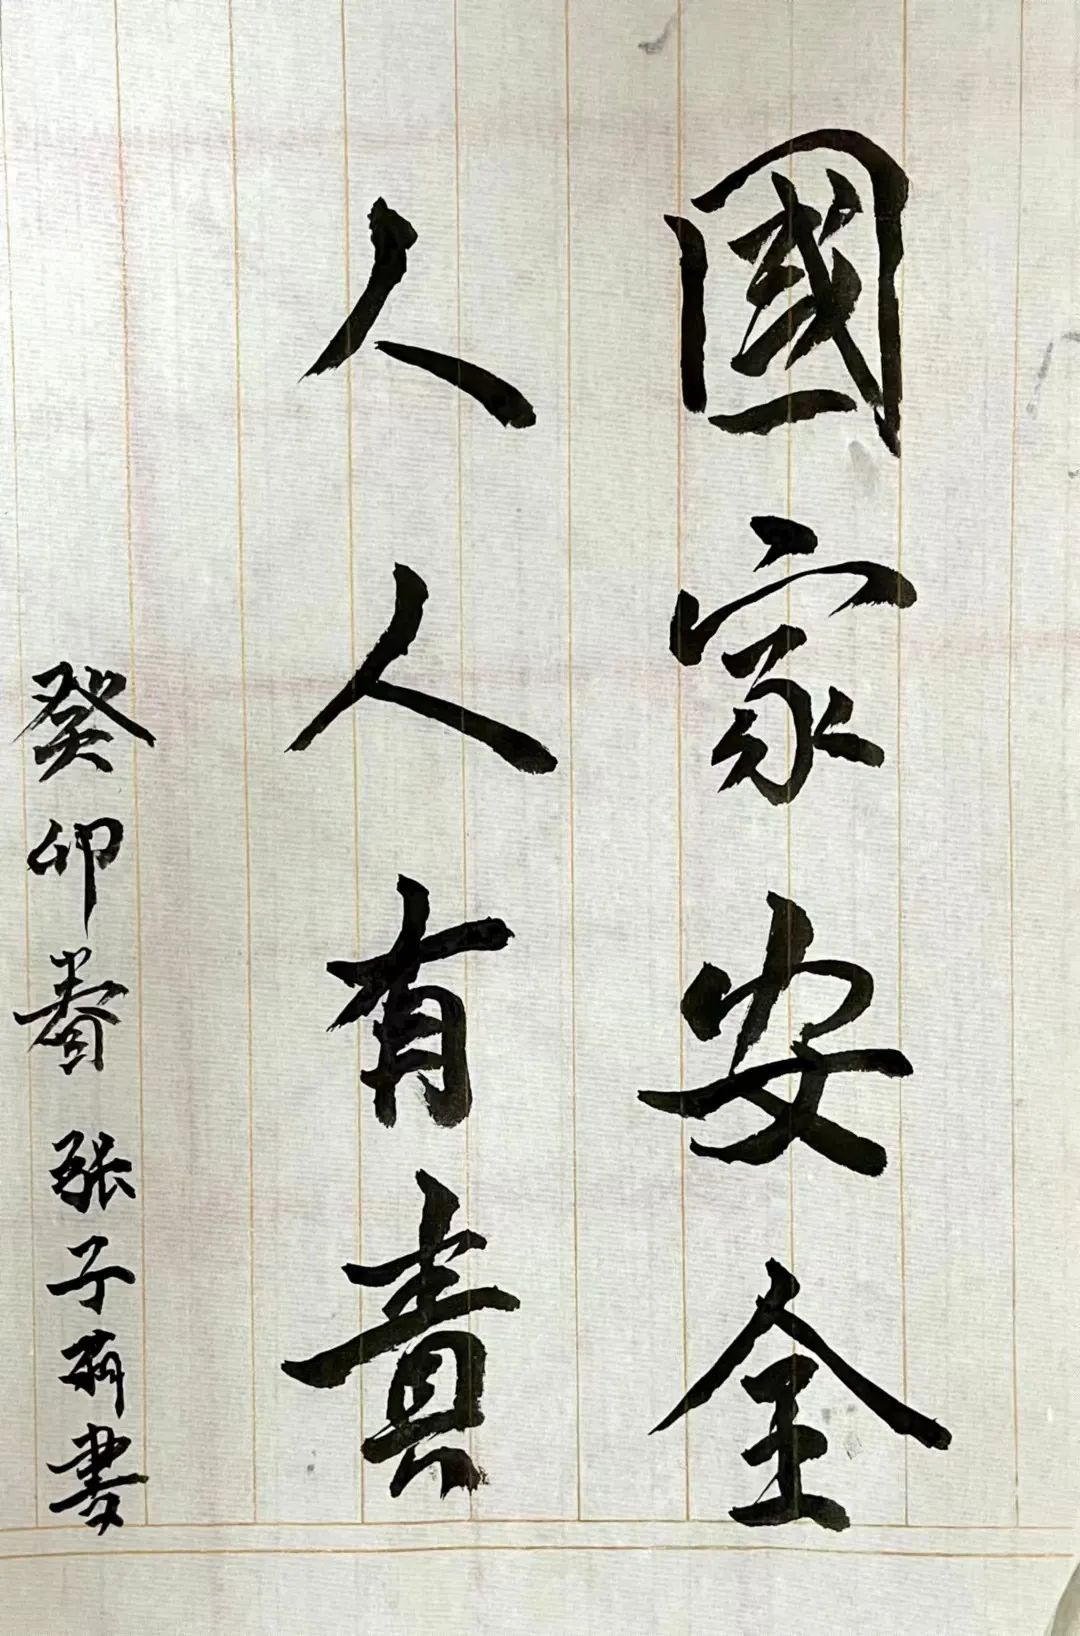 國家安全
人人有責
癸卯春 張子莉書